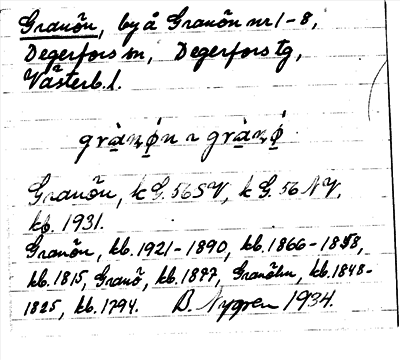 Granön, by å Granön nr 1-8,
Degerfors sn, Degerfors tg,
Västerb. l.
Granön, k G. 56 SV, k G. 56 NV,
kb. 1931.
Granön, kb. 1921-1890, kb. 1866-1858,
kb. 1815, Granö, kb. 1877, Granöhn, kb. 1848-
1825, kb. 1794. B. Nygren 1934.